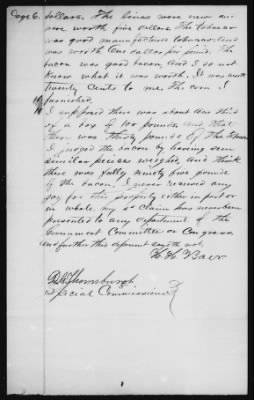 Page 6. dollars. The lines were new and
were worth five dollars. The tobacco
was good manufactured tobacco and
was worth one dollar per pound. The
bacon was good bacon, and I do not
know what it was worth. It was worth
twenty cents to me. The corn I
furnished.
I supposed there was about one third
of a box of ten pounds, and that
there was thirty pounds of the tobacco
I judged the bacon by having seen
similar pieces weighed, and think
there was fully ninety five pounds
of the bacon. I never received any
pay for this property either in part or
in whole, my claim has never been
presented to any department of the
Government Committee or Congress
and further this deponent sayeth not.
H H Baer
Thornburgh
Special Commissioner